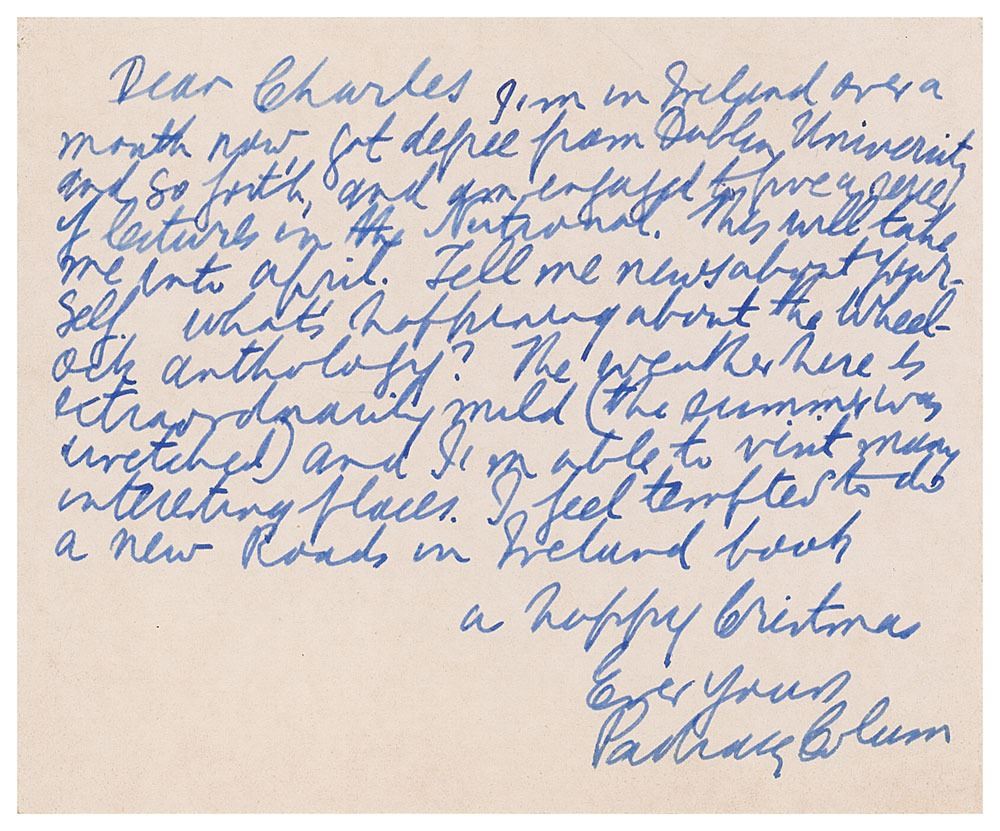 Dear Charles I'm in Ireland over a
month now, got degree from Dublin University
and so forth, and am engaged to give a series
of lectures in the National. This will take
me into april. Tell me news about your-
self. what's happening about the Wheel-
ock anthology? The weather here is
extraordinarily mild (the summer was
wretched) and I'm able to visit many
interesting places. I feel tempted to do
a new Roads in Ireland book
a happy Cristmas
Ever yours
Padraic Colum